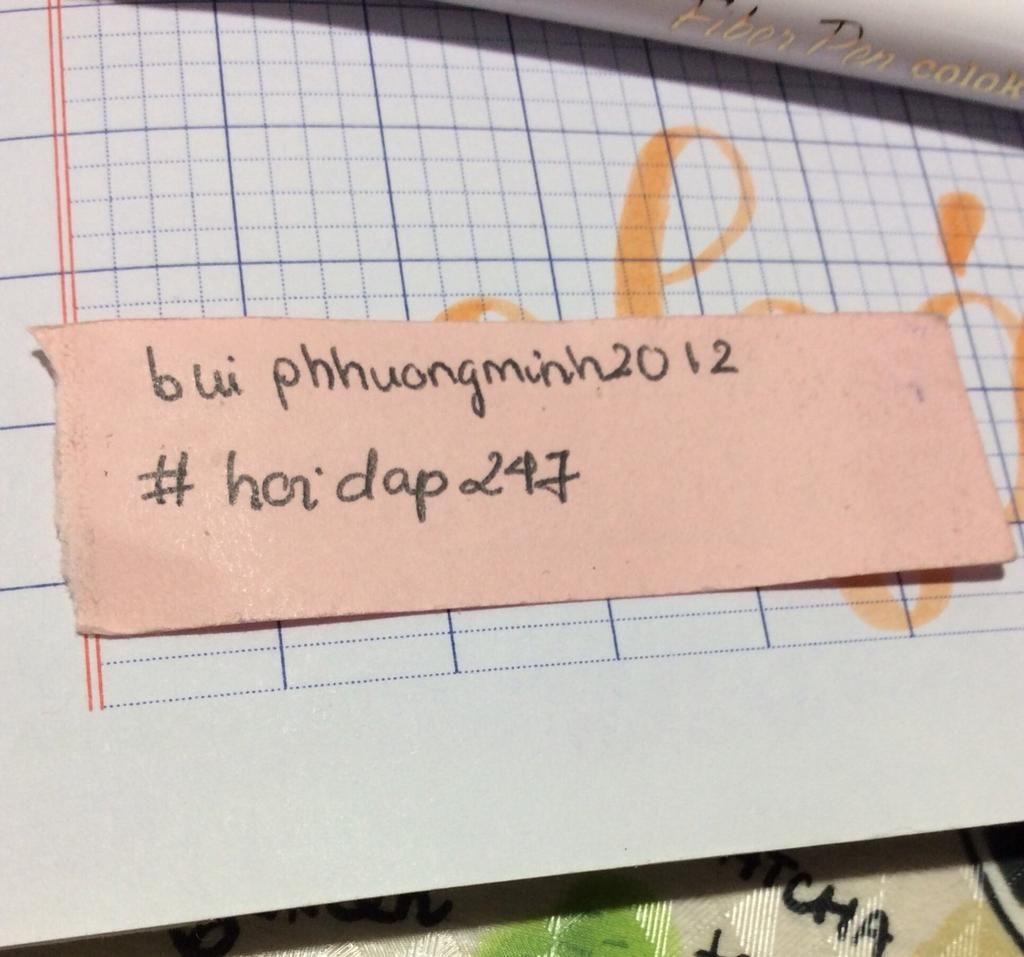 Fiber Pen colok
bui phhuongminh2012
# hoidap247
ATCHA